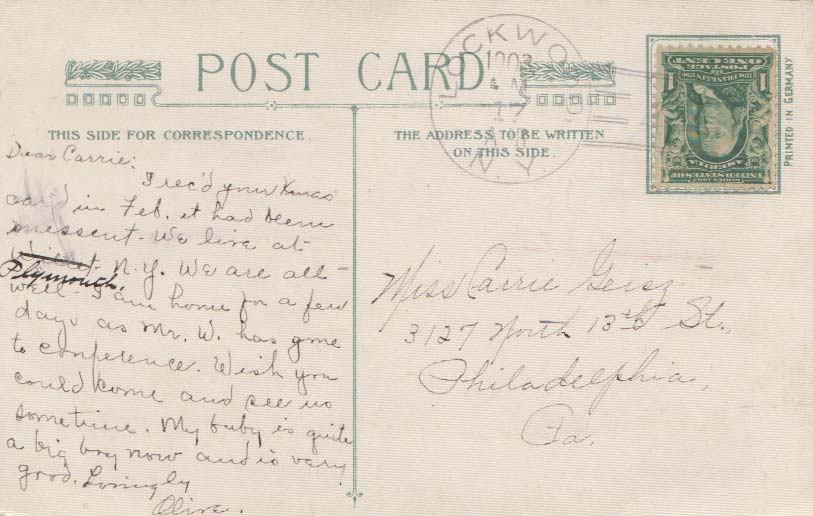 POST CARD
THIS SIDE FOR CORRESPONDENCE.
THE ADDRESS TO BE WRITTEN
ON THIS SIDE.
LOCKWOOD
N.Y.
17
UNITED STATES OF
AMERICA
POSTAGE
ONE CENT
1 1
PRINTED IN GERMANY
Dear Carrie:
I rec'd your Xmas
card in Feb. it had been
missent. We live at
Plymouth, N.Y. We are all
well. I am home for a few
days as Mr. W. has gone
to conference. Wish you
could come and see us
sometime. My baby is quite
a big boy now and is very
good. Lovingly
Olive.
Miss Carrie Geisz
3127 North 13th St.,
Philadelphia,
Pa.